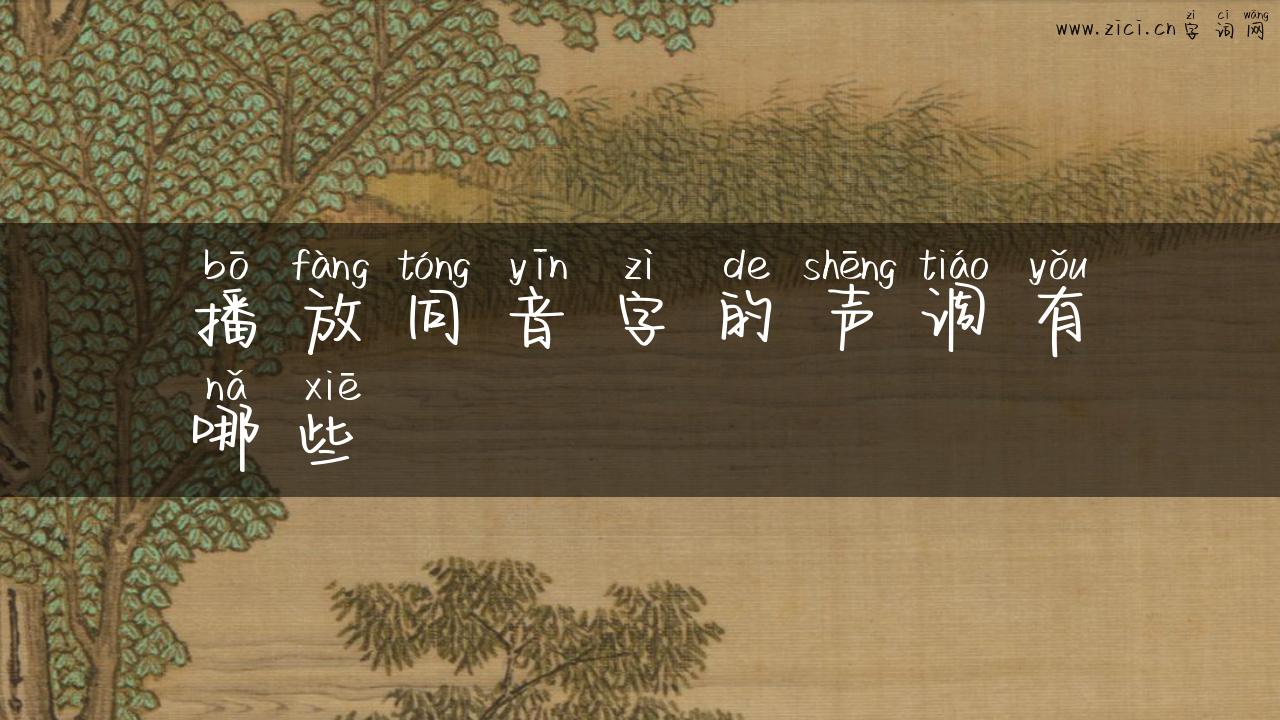 zì cí wǎng
www.zici.cn 字词网
bō fàng tóng yīn zì de shēng tiáo yǒu
播放同音字的声调有
nǎ xiē
哪些